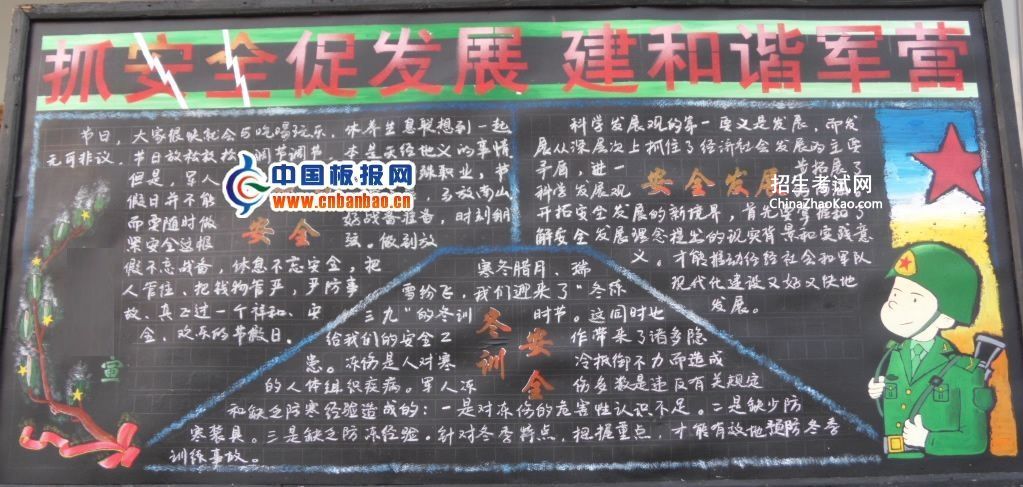 抓安全促发展 建和谐军营
节日，大家很快就会与吃喝玩乐、休养生息联想到一起
无可非议，节日放松放松 调节调节，本是天经地义的事情
但是，军人 殊职业，节
假日并不能 马放南山
而要随时做 好战备准备，时刻绷
紧安全这根 弦。做到放
安全
假不忘战备，休息不忘安全，把
人管住、把钱物管严，严防事
故、真正过一个祥和、安
全、欢乐的节假日。
宣
中国板报网
www.cnbanbao.cn
科学发展观的第一要义是发展，而发
展从深层次上抓住了经济社会发展的主要
矛盾，进一 步拓展了
科学发展观
安全发展
开拓安全发展的新境界，首先要掌握和了
解安全发展理念提出的现实背景和实践意
义。才能推动经社会和军队
现代化建设又好又快地
发展。
招生考试网
ChinaZhaoKao.com
寒冬腊月、瑞
雪纷飞，我们迎来了“冬练
三九”的冬训 时节。这同时也
给我们的安全工 作带来了诸多隐
患。冻伤是人对寒 冷抵御不力而造成
的人体组织疾病。军人冻 伤多数是违反有关规定
冬训
安全
和缺乏防寒经验造成的：一是对冻伤的危害性认识不足。二是缺少防
寒装具。三是缺乏防冻经验。针对冬季特点，把握重点，才能有效地预防冬季
训练事故。